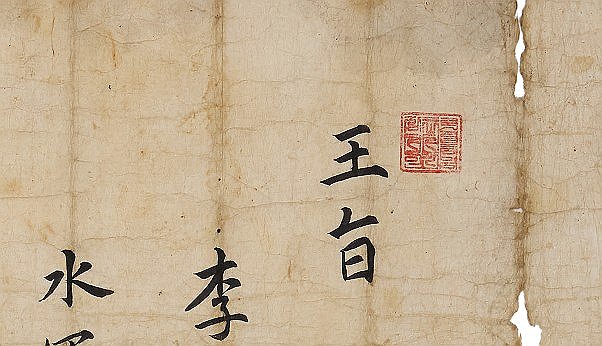 王旨
李
水